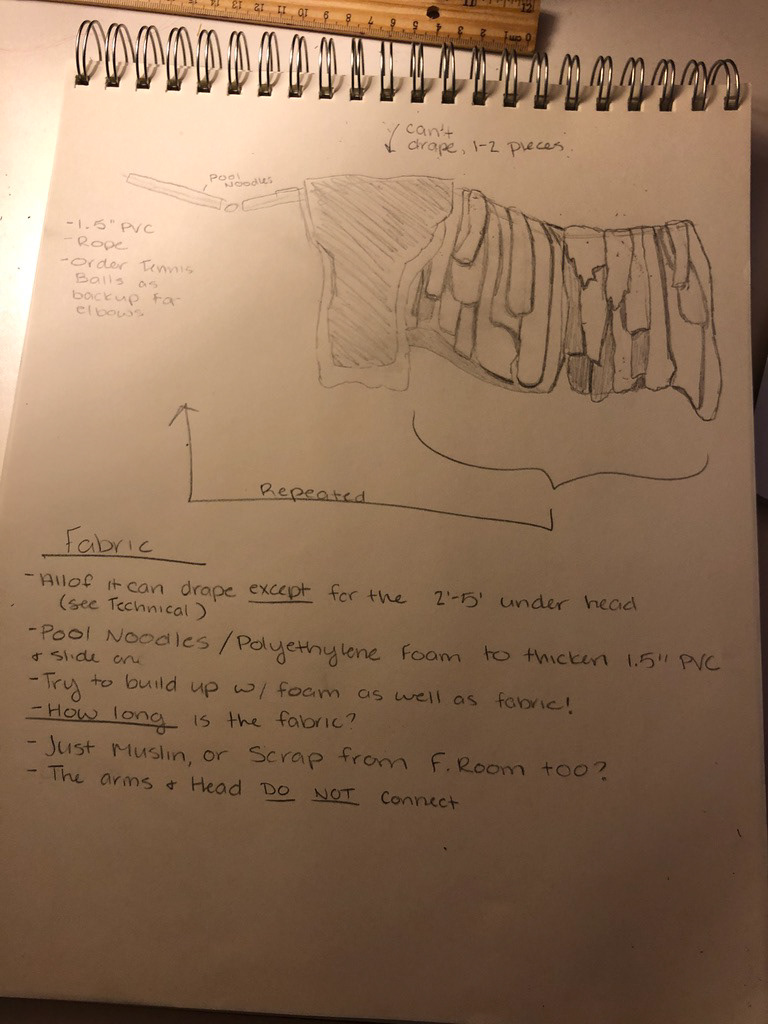 can't
drape, 1-2 pieces.
POOL
NOODLES
-1.5" PVC
-Rope
-Order Tennis
Balls as
backup for
elbows
Repeated
Fabric
-All of it can drape except for the 2'-5' under head
(see Technical)
-Pool Noodles/Polyethylene Foam to thicken 1.5" PVC
& slide on
-Try to build up w/ foam as well as fabric!
-How long is the fabric?
- Just Muslin, or Scrap from F.Room too?
- The arms & Head DO NOT connect